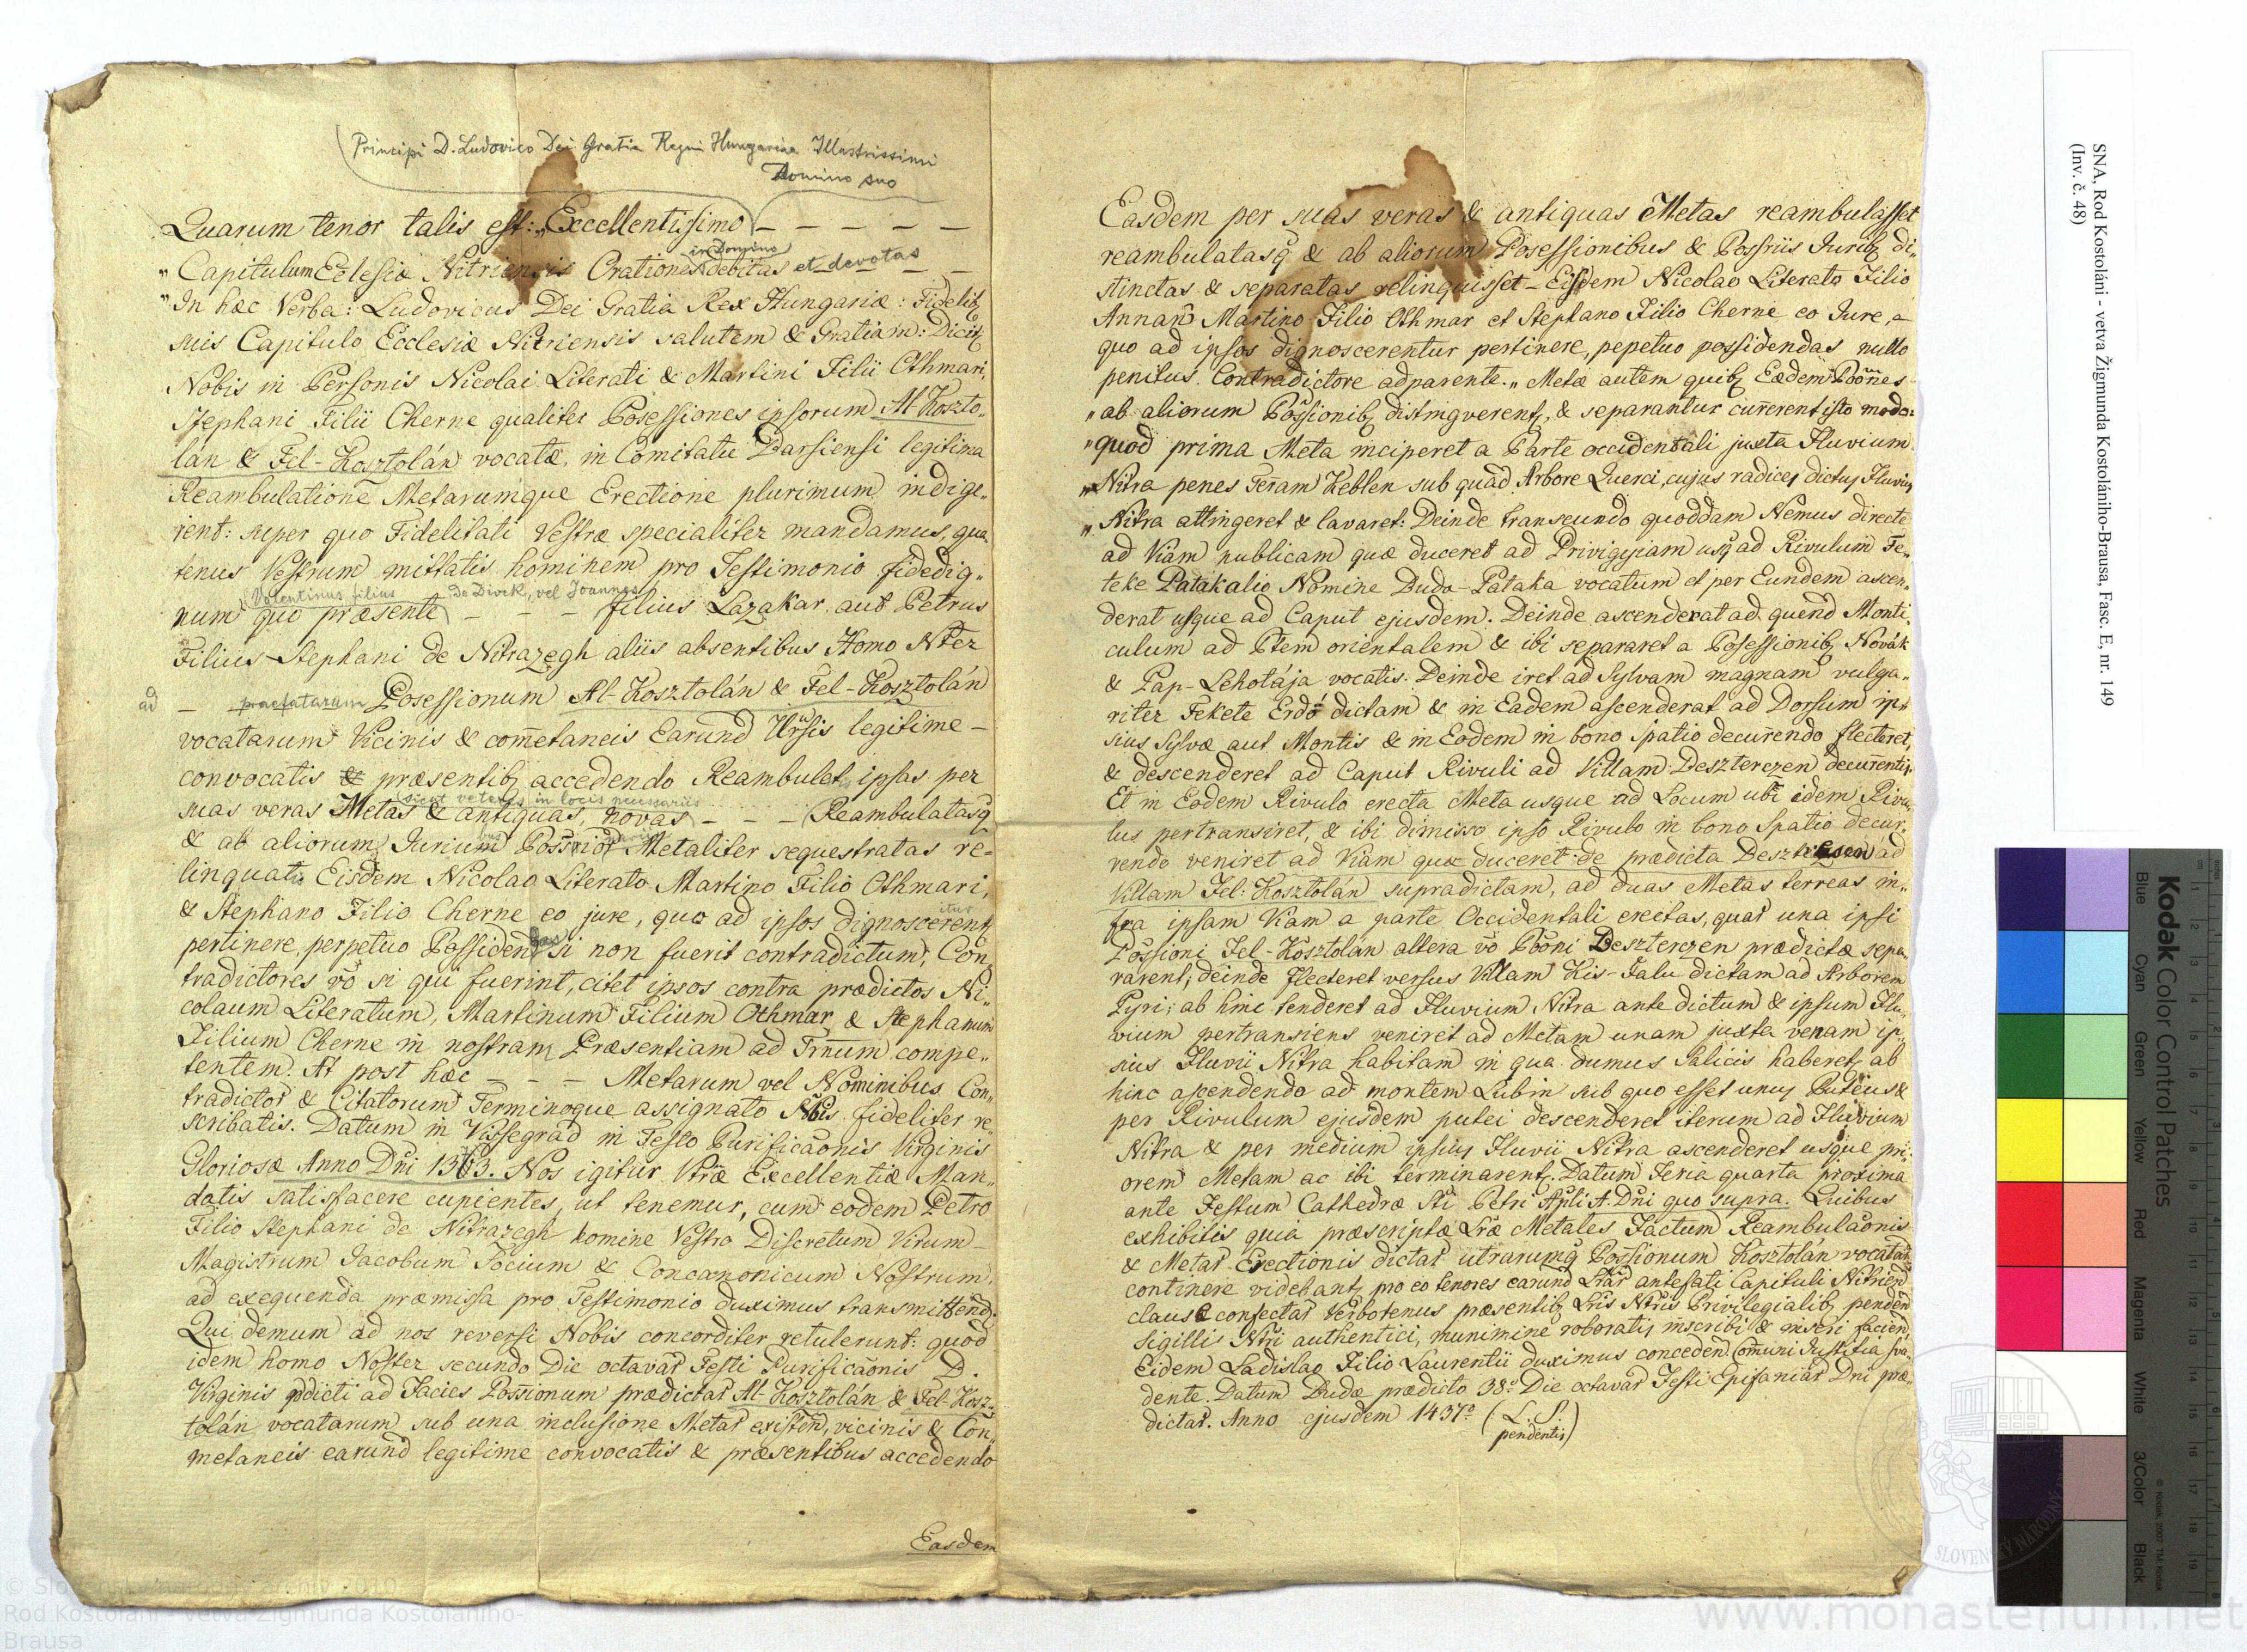 Principi D. Ludovico Dei Gratia Regni Hungariae Illustrissimi
Domino suo
Quarum tenor talis est: „Excellentissimo – – – – –
in Domino
„ Capitulum Eclesiæ Nitriensis Orationes debitas et devotas
„ In hæc Verba: Ludovicus Dei Gratia Rex Hungariæ: Fidelibꝫ
suis Capitulo Ecclesiæ Nitriensis salutem & Gratiam: Dicitꝫ
Nobis in Personis Nicolai Literati & Martini Filii Othmari,
Stephani Filii Cherne qualiter Posessiones ipsorum Al-Koszto„
lán & Fel-Kosztolán vocatæ, in Comitatu Barsiensi legitima
Reambulatione Metarumque Erectione plurimum indige„
rent: super quo Fidelitati Vestræ specialiter mandamus, qua„
tenus Vestrum mittatis hominem pro Testimonio fidedig„
Valentinus filius de Divek, vel Joannes
num quo præsente – – – filius Lazakar, aut Petrus
Filius Stephani de Nitrazegh aliis absentibus Homo Nter
ad – praefatarum Posessionum Al-Kosztolán & Fel-Kosztolán
vocatarum Vicinis & com̄etaneis Earund Ursis legitime –
convocatis & præsentibꝫ accedendo Reambulet ipsas per
sicut veteres in locis necessariis
suas veras Metas & antiquas, novas – – – Reambulatasq̃
& ab aliorum Jurium Possrior Metaliter sequestratas re-
linquatis Eisdem Nicolao Literato Martino Filio Othmari,
itur
& Stephano Filio Cherne eo jure, quo ad ipsos dignoscerentꝫ
das
pertinere, perpetuo Possidend si non fuerit contradictum, Con„
tradictores vo si qui fuerint, citet ipsos contra prædictos Ni„
colaum Literatum, Martinum Filium Othmar & Stephanum
Filium Cherne in nostram Præsentiam ad Trnum compe„
tentem. At post hæc – – – Metarum vel Nominibus Con„
tradictor & Citatorum Terminoque assignato Nbis fideliter re„
scribatis. Datum in Vissegrad in Festo Purificaonis Virginis
Gloriosæ Anno Dni 1363. Nos igitur Vræ Excellentiæ Man„
datis satisfacere cupientes, ut tenemur, cum eodem Petro
Filio Stephani de Nitrazegh homine Vestro Discretum Virum –
Magistrum Jacobum Socium & Concanonicum Nostrum,
ad exequenda præmissa pro Testimonio duximus transmittend:
Qui demum ad nos reversi Nobis concorditer retulerunt: quod
idem homo Noster secundo Die octavar Festi Purificaonis D.
Virginis pdicti ad Facies Possionum prædictar Al-Kosztolán & Fel-Kosz„
tolán vocatarum sub una inclusione Metar existen, vicinis & Con„
metaneis earund legitime convocatis & præsentibus accedendo
Easdem
Easdem per suas veras & antiquas Metas reambulasset
reambulatasq̃ & ab aliorum Posessionibus & Possriis Juribꝫ di„
stinctas & separatas relinquisset – Eisdem Nicolao Literato Filio
Annan Martino Filio Othmar et Stephano Filio Cherne eo Jure, –
quo ad ipsos dignoscerentur pertinere, pepetuo possidendas nullo
penitus Contradictore adparente. „ Metæ autem quibꝫ Eædem Poones
„ ab aliorum Possionibꝫ distingverentꝫ, & separantur currerent isto modo:
„ quod prima Meta inciperet a Parte occidentali juxta Fluvium
„ Nitra penes Terram Keblen sub quad Arbore Querci, cujus radices dictus Fluvius
„ Nitra attingeret & lavaret: Deinde transeundo quoddam Nemus directe
ad Viam publicam quæ duceret ad Privigyiam usq̃ ad Rivulum Fe„
teke Patak alio Nomine Duda-Pataka vocatum et per Eundem ascen„
derat usque ad Caput ejusdem. Deinde ascenderat ad quend Monti„
culum ad Ptem orientalem & ibi separaret a Posessionibꝫ Novák
& Pap-Lehotája vocatis. Deinde iret ad Sylvam magnam vulga„
riter Fekete Erdő dictam & in Eadem ascenderat ad Dorsum ip„
sius Sylvæ aut Montis & in Eodem in bono spatio decurrendo flecteret,
& descenderet ad Caput Rivuli ad Villam Deszterezen decurrentis.
Et in Eodem Rivulo erecta Meta usque ad Locum ubi idem Rivu„
lus pertransiret, & ibi dimisso ipso Rivulo in bono Spatio decur„
rendo veniret ad Viam quæ duceret de prædicta Deszterezen ad
Villam Fel-Kosztolán supradictam, ad duas Metas terreas in„
fra ipsam Viam a parte Occidentali erectas, quar una ipsi
Possioni Fel-Kosztolán altera vo Pooni Deszterezen prædictæ sepa„
rarent, deinde flecteret versus Villam Kis-Falu dictam ad Arborem
Pyri; ab hinc tenderet ad Fluvium Nitra ante dictum & ipsum Flu„
vium pertransiens veniret ad Metam unam juxta venam ip„
sius Fluvii Nitra habitam in qua dumus Salicis haberetꝫ ab
hinc ascendendo ad montem Lubin sub quo esset unus Puteus &
per Rivulum ejusdem putei descenderet iterum ad Fluvium
Nitra & per medium ipsius Fluvii Nitra ascenderet usque pri„
orem Metam ac ibi terminarentꝫ. Datum Feria quarta proxima
ante Festum Cathedræ Sti Petri Apli A. Dni quo supra. Quibus
exhibitis quia præscriptæ Lræ Metales Factum Reambulaonis
& Metar Erectionis dictar utrarumq̃ Possionum Kosztolán vocatar
continere videbantꝫ pro eo tenores earund Lrar antefati Capituli Nitrien
clause confectar Verbotenus præsentibꝫ Lris Ntris Privilegialibꝫ penden
Sigillis Ntri authentici, munimine roboratis inscribi & inseri facien,
Eidem Ladislao Filio Laurentii duximus conceden Comuni Justitia sva„
dente. Datum Budæ prædicto 38o Die octavar Festi Epifaniar Dni præ„
dictar. Anno ejusdem 1437o (L. S.
pendentis)
SNA, Rod Kostoláni - vetva Žigmunda Kostolániho-Brausa, Fasc. E, nr. 149
(Inv. č. 48)
Kodak Color Control Patches
Blue Cyan Green Yellow Red Magenta White 3/Color Black
© Kodak, 2007 TM: Kodak
© Slovenský národný archív 2010
Rod Kostoláni - vetva Žigmunda Kostolániho-
Brausa
SLOVENSKÝ NÁRODNÝ
www.monasterium.net